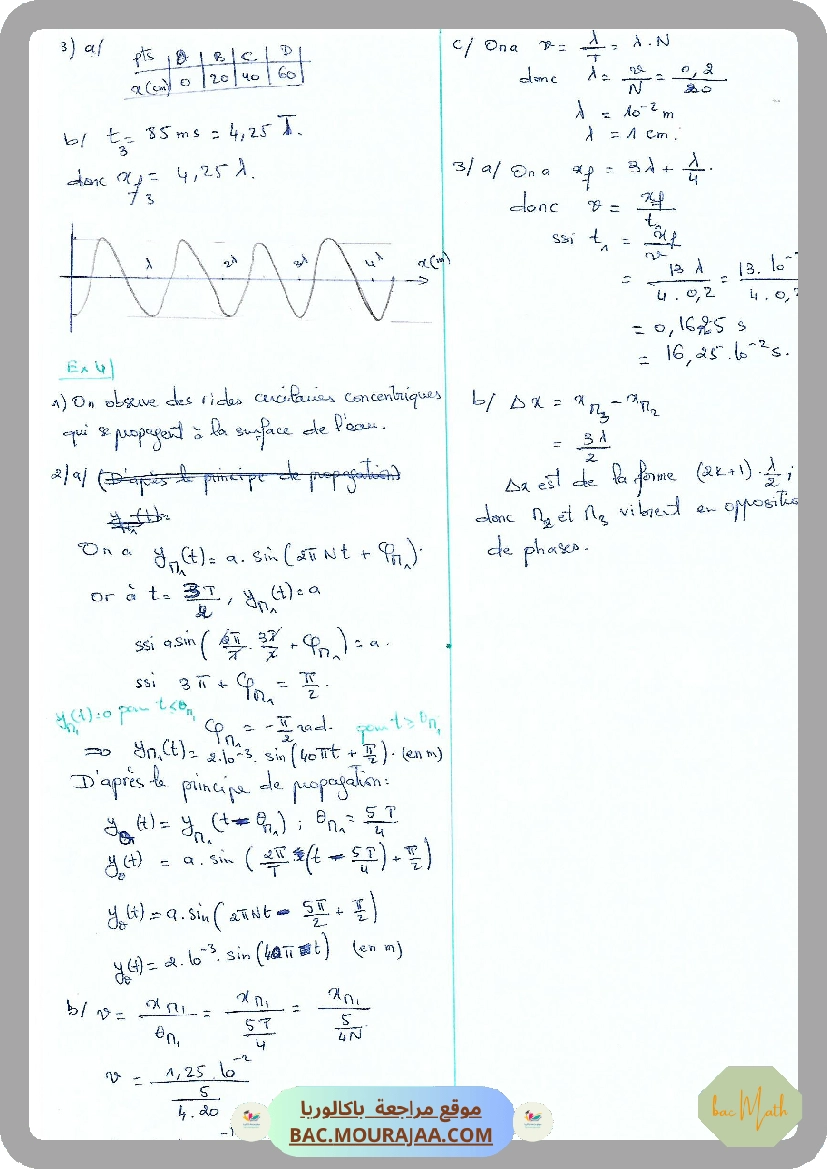 3) a/
pts | O | B | C | D
x(cm) | 0 | 20 | 40 | 60
b/ t3 = 85 ms = 4,25 T.
donc xf3 = 4,25 λ.
λ 2λ 3λ 4λ x(m)
Ex 4
1) On observe des rides circulaires concentriques
qui se propagent à la surface de l'eau.
2/a/ (D'après le principe de propagation)
On a yM1(t) = a. sin(2πNt + φM1).
or à t = 3T/2, yM1(t) = a
ssi a.sin( 2π/T . 3T/2 + φM1) = a.
ssi 3π + φM1 = π/2.
yM1(t) = 0 pour t ≤ θM1
φM1 = -π/2 rad. pour t ≥ θM1
⇒ yM1(t) = 2.10⁻³. sin(40πt + π/2). (en m)
D'après le principe de propagation:
yO(t) = yM1(t - θM1) ; θM1 = 5T/4
yO(t) = a. sin( 2π/T (t - 5T/4) + π/2)
yO(t) = a. sin(2πNt - 5π/2 + π/2)
yO(t) = 2.10⁻³. sin(40πt) (en m)
b/ v = xM1/θM1 = xM1/(5T/4) = xM1/(5/4N)
v = 1,25.10⁻²/(5/4.20)
c/ On a v = λ/T = λ.N
donc λ = v/N = 0,2/20
λ = 10⁻² m
λ = 1 cm.
3/a/ On a xf = 3λ + λ/4.
donc v = xf/t1
ssi t1 = xf/v
= 13 λ/4.0,2 = 13. 10⁻/4.0,2
= 0,1625 s
= 16,25.10⁻² s.
b/ Δx = xM3 - xM2
= 3λ/2
Δx est de la forme (2k+1).λ/2 ;
donc M2 et M3 vibrent en oppositio
de phases.
موقع مراجعة باكالوريا
BAC.MOURAJAA.COM
bac Math